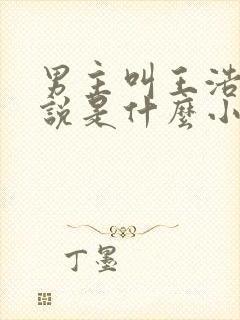 男主叫王浩
説是什麼小
丁墨